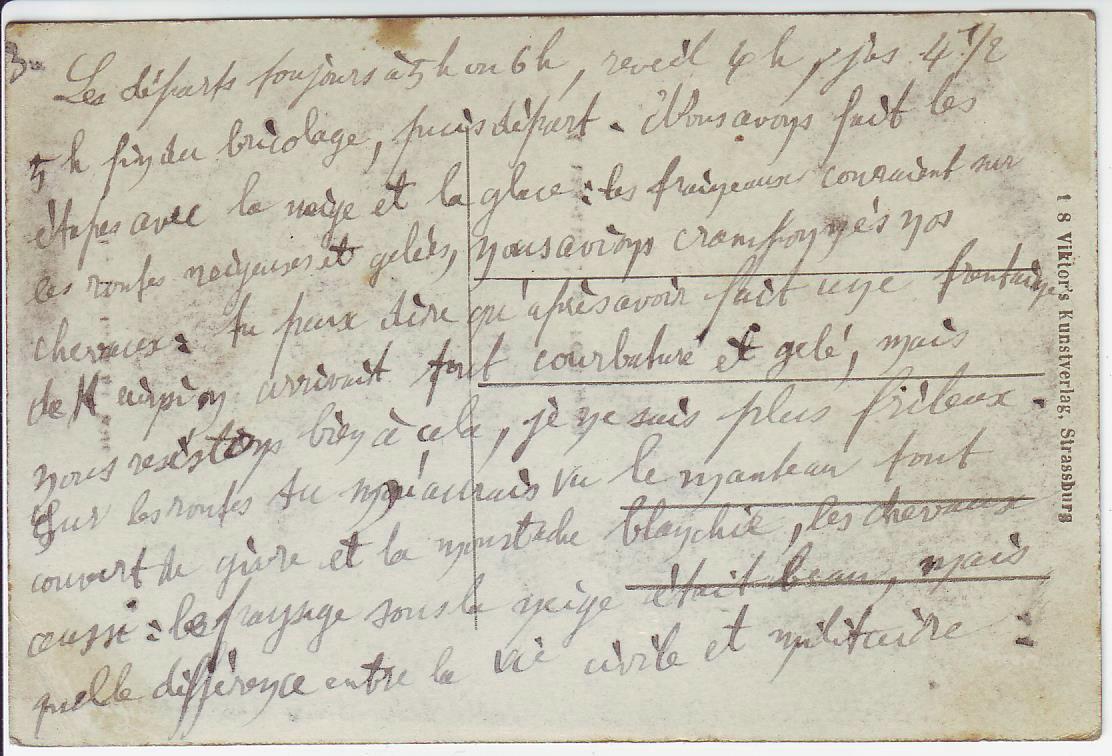 3
Les départs toujours à 5 h ou 6 h, reveil 4 h, jus 4 1/2
5 h fin du bricolage, puis départ. Nous avons fait les
étapes avec la neige et la glace : les traineaux couraient sur
les routes neigeuses et gelées, nous avions cramponnés nos
chevaux : tu peux dire qu'après avoir fait une trentaine
de K environ arrivait tout courbaturé et gelé, mais
nous resistons bien à cela, je ne suis plus frileux.
Sur les routes tu m'aurais vu le manteau tout
couvert de givre et la moustache blanchie, les chevaux
aussi : le paysage sous la neige était beau, mais
quelle différence entre la vie civile et militaire !!
1 8 Viktor's Kunstverlag, Strassburg